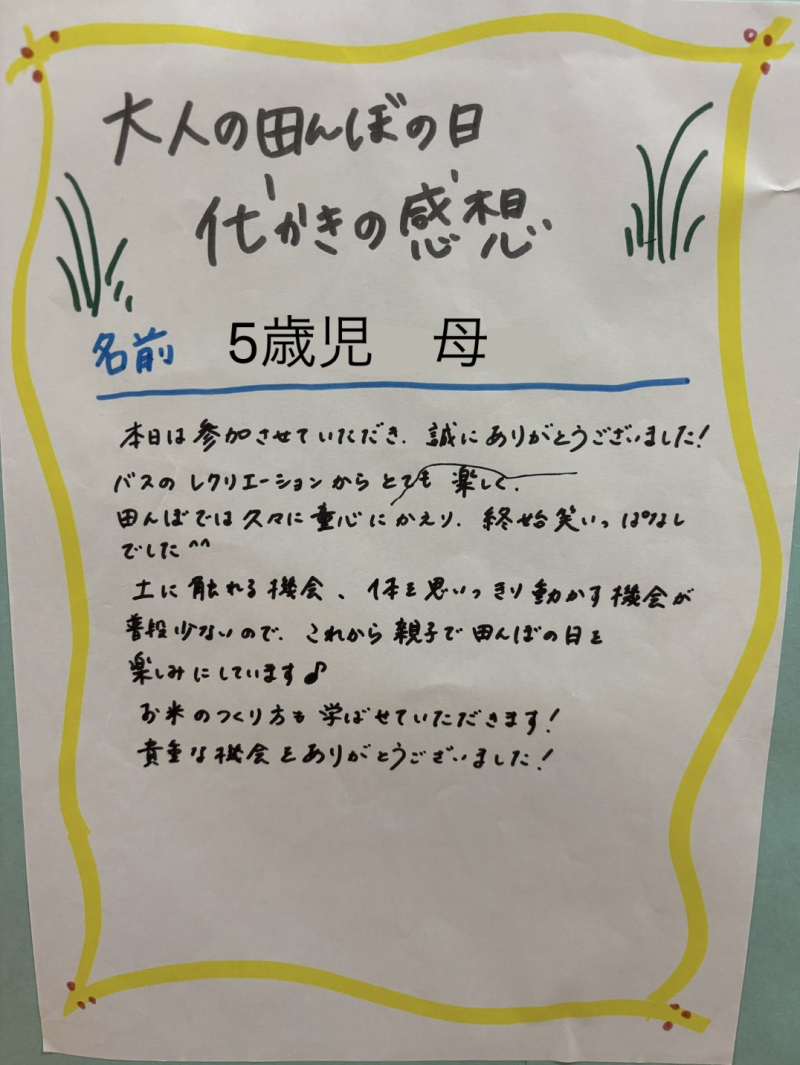 大人の田んぼの日
代かきの感想
名前 5歳児 母
本日は参加させていただき、誠にありがとうございました!
バスのレクリエーションからとても楽しく、
田んぼでは久々に童心にかえり、終始笑いっぱなし
でした^^
土に触れる機会、体を思いっきり動かす機会が
普段少ないので、これから親子で田んぼの日を
楽しみにしています♪
お米のつくり方も学ばせていただきます!
貴重な機会をありがとうございました!